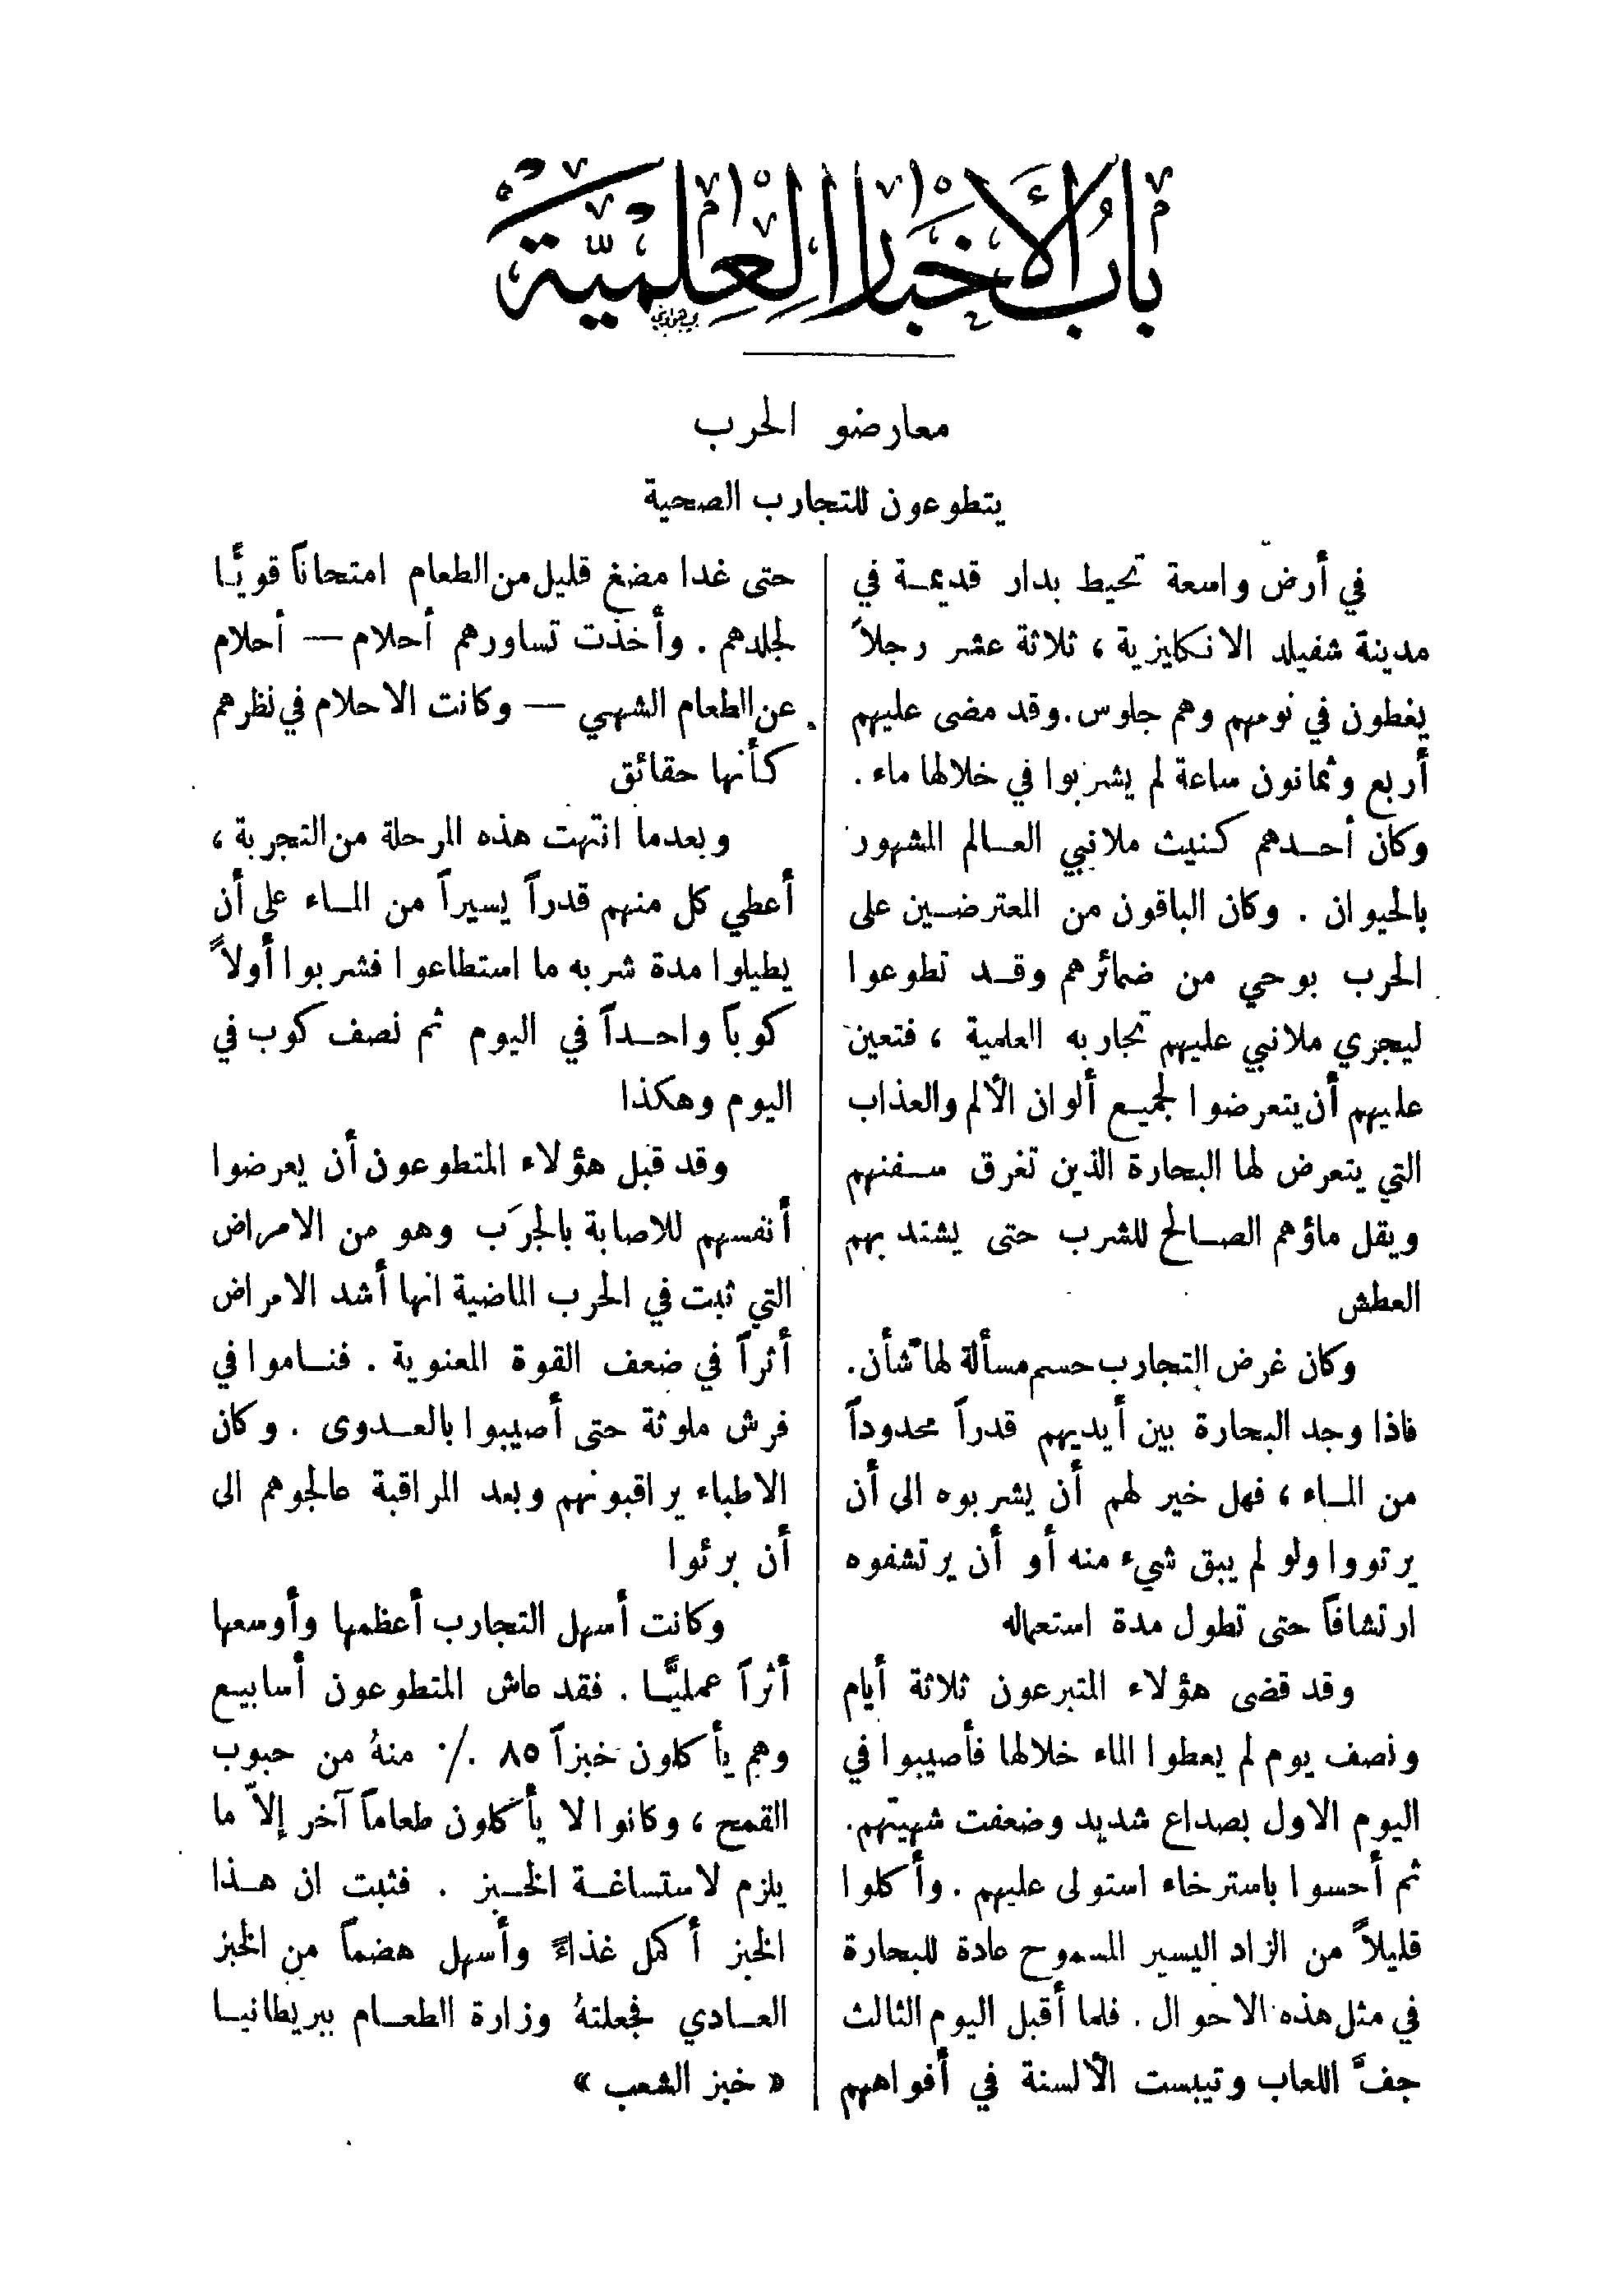 باب الأخبار العلمية
معارضو الحرب
يتطوعون للتجارب الصحية
في أرض واسعة تحيط بدار قديمة في
مدينة شفيلد الانكليزية ، ثلاثة عشر رجلاً
يغطون في نومهم وهم جلوس . وقد مضى عليهم
أربع وثمانون ساعة لم يشربوا في خلالها ماء .
وكان أحدهم كنيث ملانبي العالم المشهور
بالحيوان . وكان الباقون من المعترضين على
الحرب بوحي من ضمائرهم وقد تطوعوا
ليجري ملانبي عليهم تجاربه العلمية ، فتعين
عليهم أن يتعرضوا لجميع ألوان الألم والعذاب
التي يتعرض لها البحارة الذين تغرق سفنهم
ويقل ماؤهم الصالح للشرب حتى يشتد بهم
العطش
وكان غرض التجارب حسم مسألة لها شأن .
فاذا وجد البحارة بين أيديهم قدراً محدوداً
من الماء ، فهل خير لهم أن يشربوه الى أن
يرتووا ولو لم يبق شيء منه أو أن يرتشفوه
ارتشافاً حتى تطول مدة استعماله
وقد قضى هؤلاء المتبرعون ثلاثة أيام
ونصف يوم لم يعطوا الماء خلالها فأصيبوا في
اليوم الاول بصداع شديد وضعفت شهيتهم .
ثم أحسوا باسترخاء استولى عليهم . وأكلوا
قليلاً من الزاد اليسير المسموح عادة للبحارة
في مثل هذه الاحوال . فلما أقبل اليوم الثالث
جفَّ اللعاب وتيبست الألسنة في أفواههم
حتى غدا مضغ قليل من الطعام امتحاناً قويًّا
لجلدهم . وأخذت تساورهم أحلام — أحلام
عن الطعام الشهي — وكانت الاحلام في نظرهم
كأنها حقائق
وبعدما انتهت هذه المرحلة من التجربة ،
أعطي كل منهم قدراً يسيراً من الماء على أن
يطيلوا مدة شربه ما استطاعوا فشربوا أولاً
كوباً واحداً في اليوم ثم نصف كوب في
اليوم وهكذا
وقد قبل هؤلاء المتطوعون أن يعرضوا
أنفسهم للاصابة بالجرَب وهو من الامراض
التي ثبت في الحرب الماضية انها أشد الامراض
أثراً في ضعف القوة المعنوية . فناموا في
فرش ملوثة حتى أصيبوا بالعدوى . وكان
الاطباء يراقبونهم وبعد المراقبة عالجوهم الى
أن برئوا
وكانت أسهل التجارب أعظمها وأوسعها
أثراً عمليًّا . فقد عاش المتطوعون أسابيع
وهم يأكلون خبزاً ٨٥ ٪ منهُ من حبوب
القمح ، وكانوا لا يأكلون طعاماً آخر إلاّ ما
يلزم لاستساغة الخبز . فثبت ان هذا
الخبز أكمل غذاءً وأسهل هضماً من الخبز
العادي فجعلتهُ وزارة الطعام ببريطانيا
« خبز الشعب »